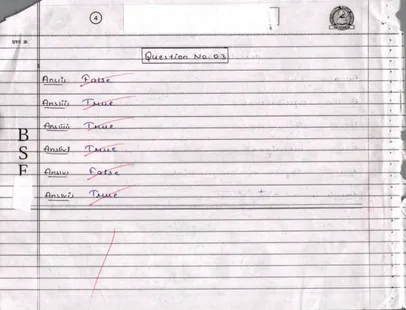 4
Question No. 03
Ans(i) False
Ans(ii) True
Ans(iii) True
Ans(iv) True
Ans(v) False
Ans(vi) True
B
S
E